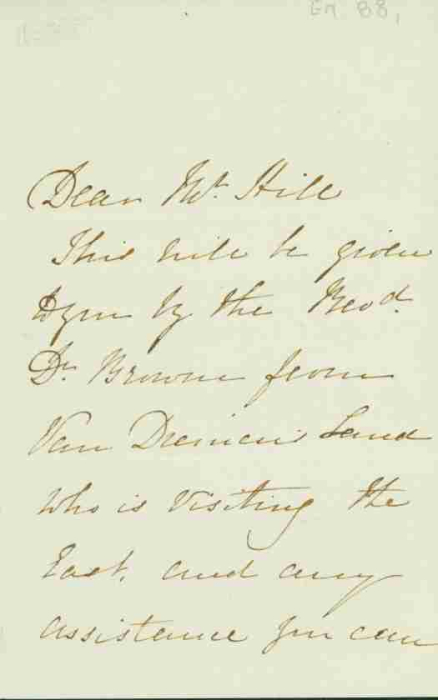 GM 88,
Dear Mr. Hill
This will be given
to you by the Revd.
Dr. Browne from
Van Diemens Land
who is visiting the
East, and any
assistance you can